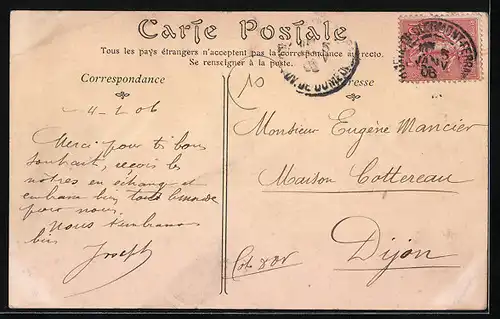 Carte Postale
Tous les pays étrangers n'acceptent pas la correspondance au recto.
Se renseigner à la poste.
Correspondance
Adresse
10
4-2-06
Merci pour ti bons
souhaits, reçois les
nôtres en échange et
embrasse bien tout le monde
pour nous.
Nous t'embrassons
bien
Joseph
Monsieur Eugène Mancier
Maison Cottereau
Dijon
Cote d'Or